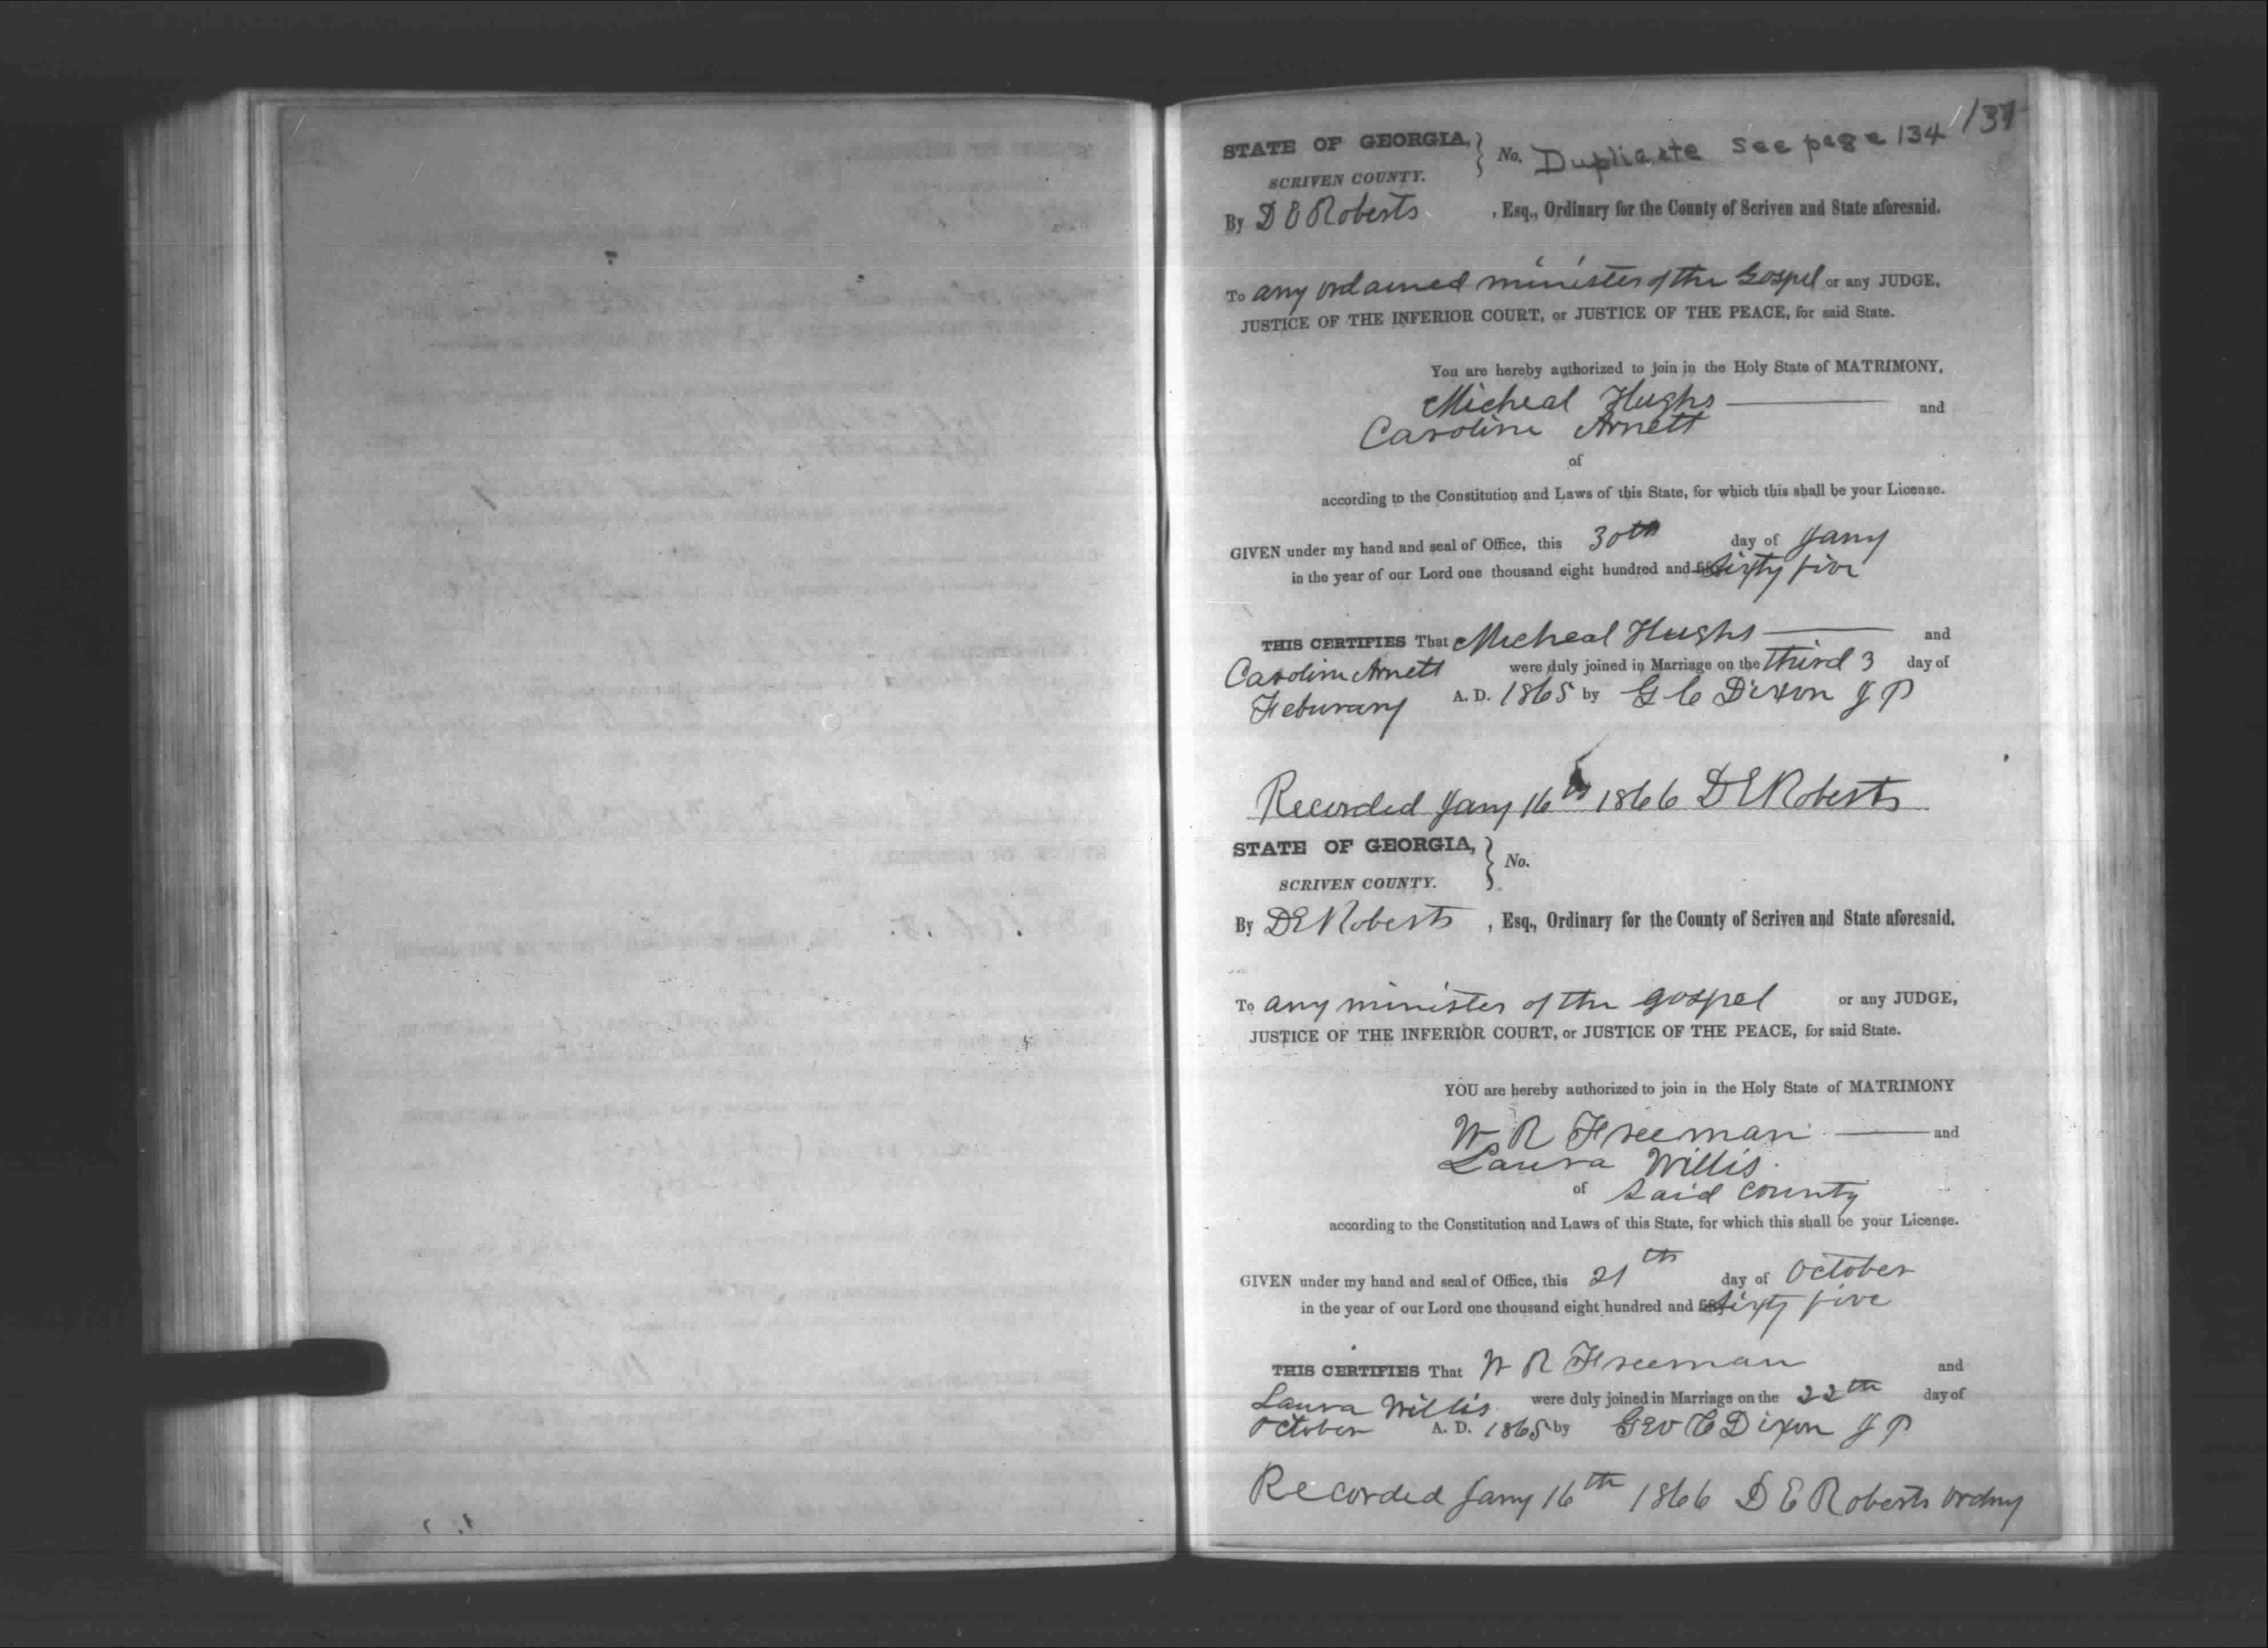 137
STATE OF GEORGIA, } No. Duplicate see page 134
SCRIVEN COUNTY.
By D E Roberts , Esq., Ordinary for the County of Scriven and State aforesaid.
To any ordained minister of the Gospel or any JUDGE,
JUSTICE OF THE INFERIOR COURT, or JUSTICE OF THE PEACE, for said State.
You are hereby authorized to join in the Holy State of MATRIMONY,
Micheal Hughs and
Caroline Arnett
of
according to the Constitution and Laws of this State, for which this shall be your License.
GIVEN under my hand and seal of Office, this 30th day of Jany
in the year of our Lord one thousand eight hundred and sixty five
THIS CERTIFIES That Micheal Hughs and
Caroline Arnett were duly joined in Marriage on the third 3 day of
Feburary A. D. 1865 by G C Dixon J P
Recorded Jany 16th 1866 D E Roberts
STATE OF GEORGIA, } No.
SCRIVEN COUNTY.
By D E Roberts , Esq., Ordinary for the County of Scriven and State aforesaid.
To any minister of the gospel or any JUDGE,
JUSTICE OF THE INFERIOR COURT, or JUSTICE OF THE PEACE, for said State.
YOU are hereby authorized to join in the Holy State of MATRIMONY
W R Freeman and
Laura Willis
of said county
according to the Constitution and Laws of this State, for which this shall be your License.
GIVEN under my hand and seal of Office, this 21th day of October
in the year of our Lord one thousand eight hundred and sixty five
THIS CERTIFIES That W R Freeman and
Laura Willis were duly joined in Marriage on the 22th day of
October A. D. 1865 by Geo C Dixon J P
Recorded Jany 16th 1866 D E Roberts Ordny